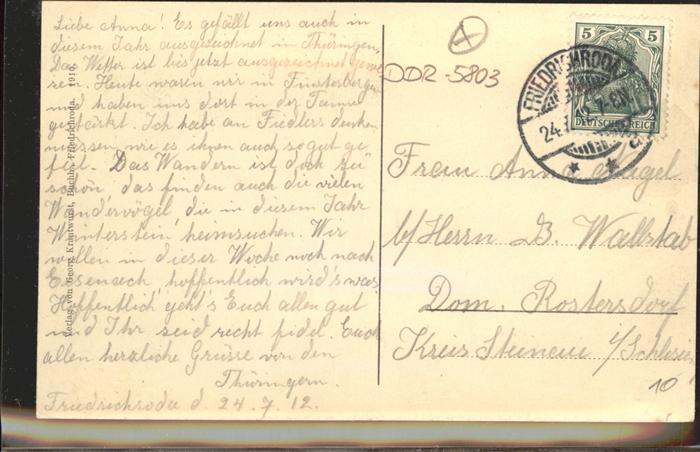 Liebe Anna! Es gefällt uns auch in
diesem Jahr ausgezeichnet in Thüringen,
Das Wetter ist bis jetzt ausgezeichnet gewe
sen. Heute waren wir in Finsterbergen
und haben uns dort in der Tanne
gestärkt. Ich habe an Fiedlers denken
müssen, wie es ihnen auch so gut ge
fiel. Das Wandern ist doch zu
schön, das finden auch die vielen
Wandervögel, die in diesem Jahr
Winterstein heimsuchen. Wir
wollen in dieser Woche noch nach
Eisenach, hoffentlich wird's was.
Hoffentlich geht's Euch allen gut
und Ihr seid recht fidel. Euch
allen herzliche Grüsse von den
Thüringern.
Friedrichroda d. 24.7.12.
Verlag von Georg Krautwurst, Buchhdl. Friedrichroda. 1910.
DDR-5803
5 5
DEUTSCHES REICH
FRIEDRICHRODA
24.
Frau Anna Nagel
b/Herrn B. Wallstab
Dom. Rostersdorf
Kreis Steinau i/Schlesien
10